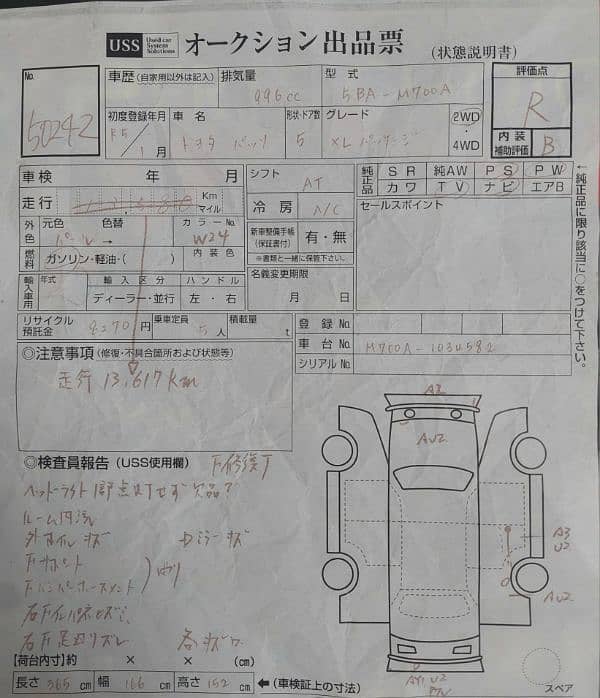 USS Used car System Solutions オークション出品票 (状態説明書)
No. 50242
車歴(自家用以外は記入) 排気量 996cc 型式 5BA-M700A
評価点 R
初度登録年月 R5/1月 車名 トヨタ パッソ 形状・ドア数 5 グレード XLパッケージ 2WD・4WD
内装補助評価 B
車検 年 月 シフト AT
純正品 SR 純AW PS PW
カワ TV ナビ エアB
走行 Km マイル 冷房 A/C
セールスポイント
外色 元色 パール 色替 カラーNo. W24
新車整備手帳(保証書付) 有・無
※書類と一緒に保管下さい。
燃料 ガソリン・軽油・( ) 内装色
名義変更期限 月 日
輸入車用 年式 輸入区分 ディーラー・並行 ハンドル 左・右
リサイクル預託金 8270円 乗車定員 5人 積載量 t
登録No.
車台No. M700A-1034582
シリアルNo.
←純正品に限り該当に○をつけて下さい。
◎注意事項(修復・不具合箇所および状態等)
走行 13,617km
◎検査員報告(USS使用欄)
ルーム内汚
外ホイルキズ ドミラーキズ
右F足廻りズレ 各キズ
A2
AU2
A3
U2
AU2
【荷台内寸】約 × × (cm)
長さ 365 cm 幅 166 cm 高さ 152 cm ←(車検証上の寸法)
スペア